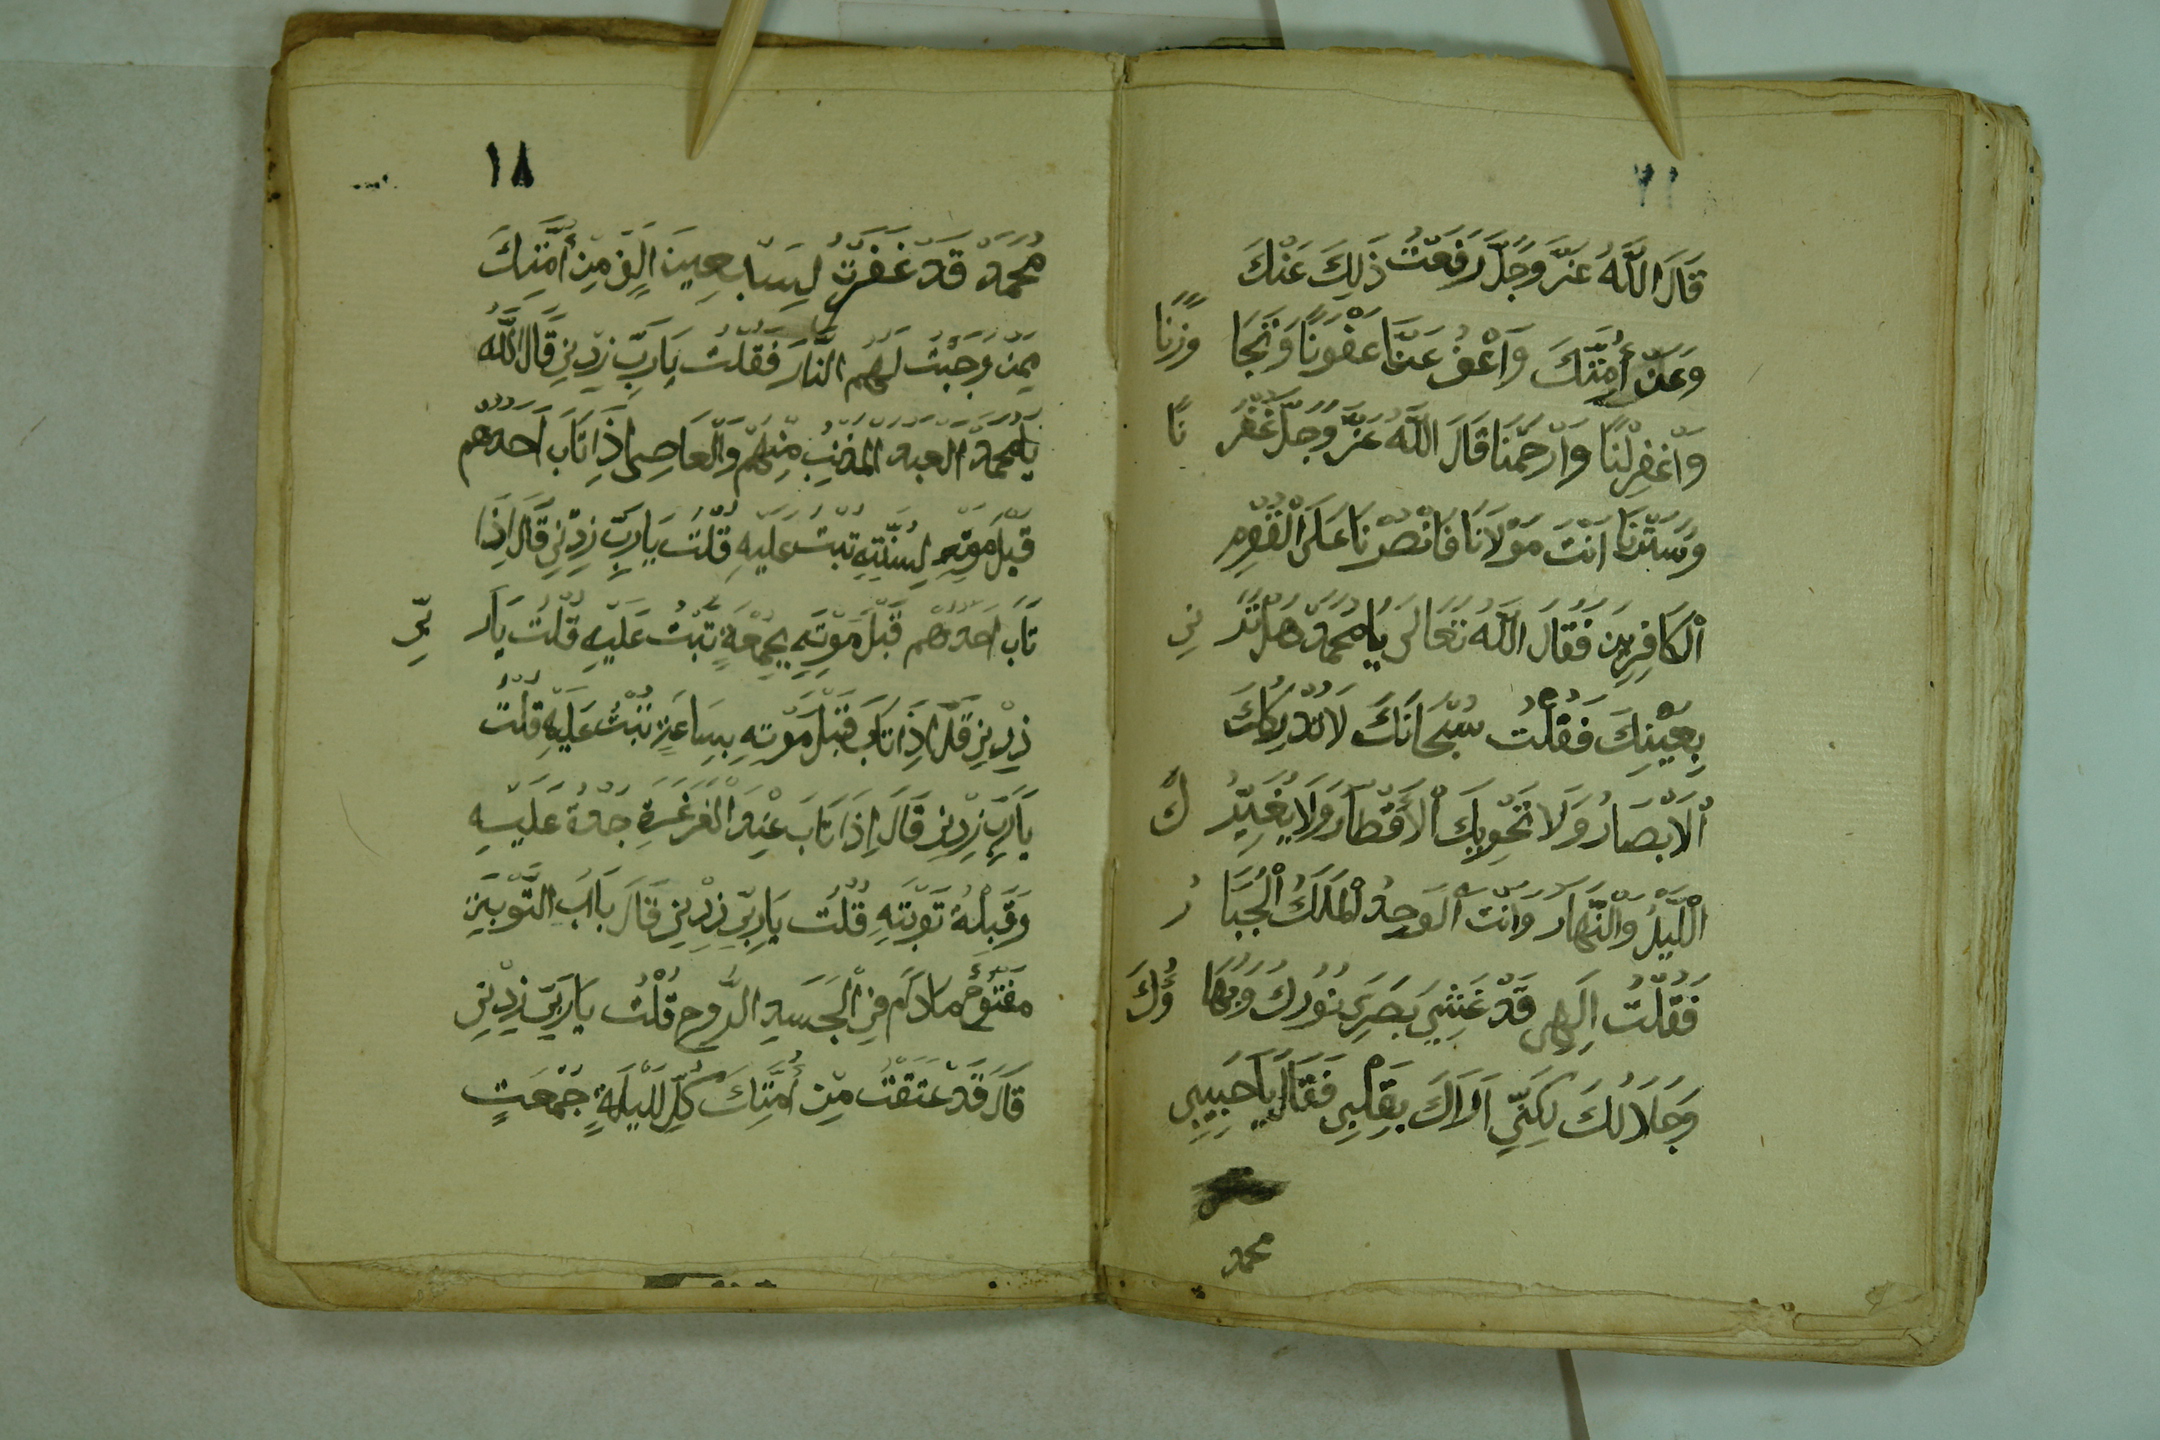 قَالَ اللَّهُ عَزَّ وَجَلَّ رَفَعْتُ ذَلِكَ عَنْكَ
وَعَنْ أُمَّتِكَ وَاعْفُ عَنَّا عَفَوْنَا وَتَجَا وَزْنَا
وَاغْفِرْلَنَا وَارْحَمْنَا قَالَ اللَّهُ عَزَّ وَجَلَّ غَفَرْ نَا
وَسَتَرْنَا اَنْتَ مَوْلَانَا فَانْصُرْنَا عَلَى الْقَوْمِ
الْكَافِرِينَ فَقَالَ اللَّهُ تَعَالَى يَا مُحَمَّدُ هَلْ تَرَ نِي
بِعَيْنِكَ فَقُلْتُ سُبْحَانَكَ لَا تُدْرِكُكَ
اْلَابْصَارُ وَلَا تَحْوِيكَ اْلَاقْطَارُ وَلَا يُغَيِّرُ كَ
اللَّيْلُ وَالنَّهَارُ وَاَنْتَ الْوَحِدُ الْمَلِكُ الْجَبَّا رُ
فَقُلْتُ اِلَهِى قَدْ غَشِيَ بَصَرِى نُورُكَ وَبَهَا ؤُكَ
وَجَلَالُكَ لَكِنِّي اَرَاكَ بِقَلْبِي فَقَالَ يَا حَبِيبِي
محمد
١٨
مُحَمَّدُ قَدْ غَفَرْتُ لِسَبْعِينَ اَلْفٍ مِنْ اُمَّتِكَ
مِمَّنْ وَجَبَتْ لَهُمُ النَّارُ فَقُلْتُ يَارَبِّ زِدْنِي قَالَ اللَّهُ
يَا مُحَمَّدُ الْعَبْدُ الْمُذْنِبُ مِنْهُمْ وَالْعَاصِى اِذَا تَابَ اَحَدُهُمْ
قَبْلَ مَوْتِهِ لِسُنَّتِهِ تُبْتُ عَلَيْهِ قُلْتُ يَارَبِّ زِدْنِي قَالَ اِذَا
تَابَ اَحَدُهُمْ قَبْلَ مَوْتِهِ بِجُمْعَةٍ تُبْتُ عَلَيْهِ قُلْتُ يَارَ بِّي
زِدْنِي قَلَ اِذَا تَابَ قَبْلَ مَوْتِهِ بِسَاعَةٍ تُبْتُ عَلَيْهِ قُلْتُ
يَارَبِّ زِدْنِي قَالَ اِذَا تَابَ عِنْدَ الْغَرْغَرَةِ جُدْتُ عَلَيْهِ
وَقَبِلْتُ تَوْبَتَهِ قُلْتُ يَارَبِّي زِدْنِي قَالَ بَابُ التَّوْبَةِ
مَفْتُوحٌ مَادَامَ فِي الْجَسَدِ الرُّوحِ قُلْتُ يَارَبِّي زِدْنِي
قَالَ قَدْ عَتَقْتُ مِنْ اُمَّتِكَ كُلِّ لَيْلَةٍ جُمْعَتٍ